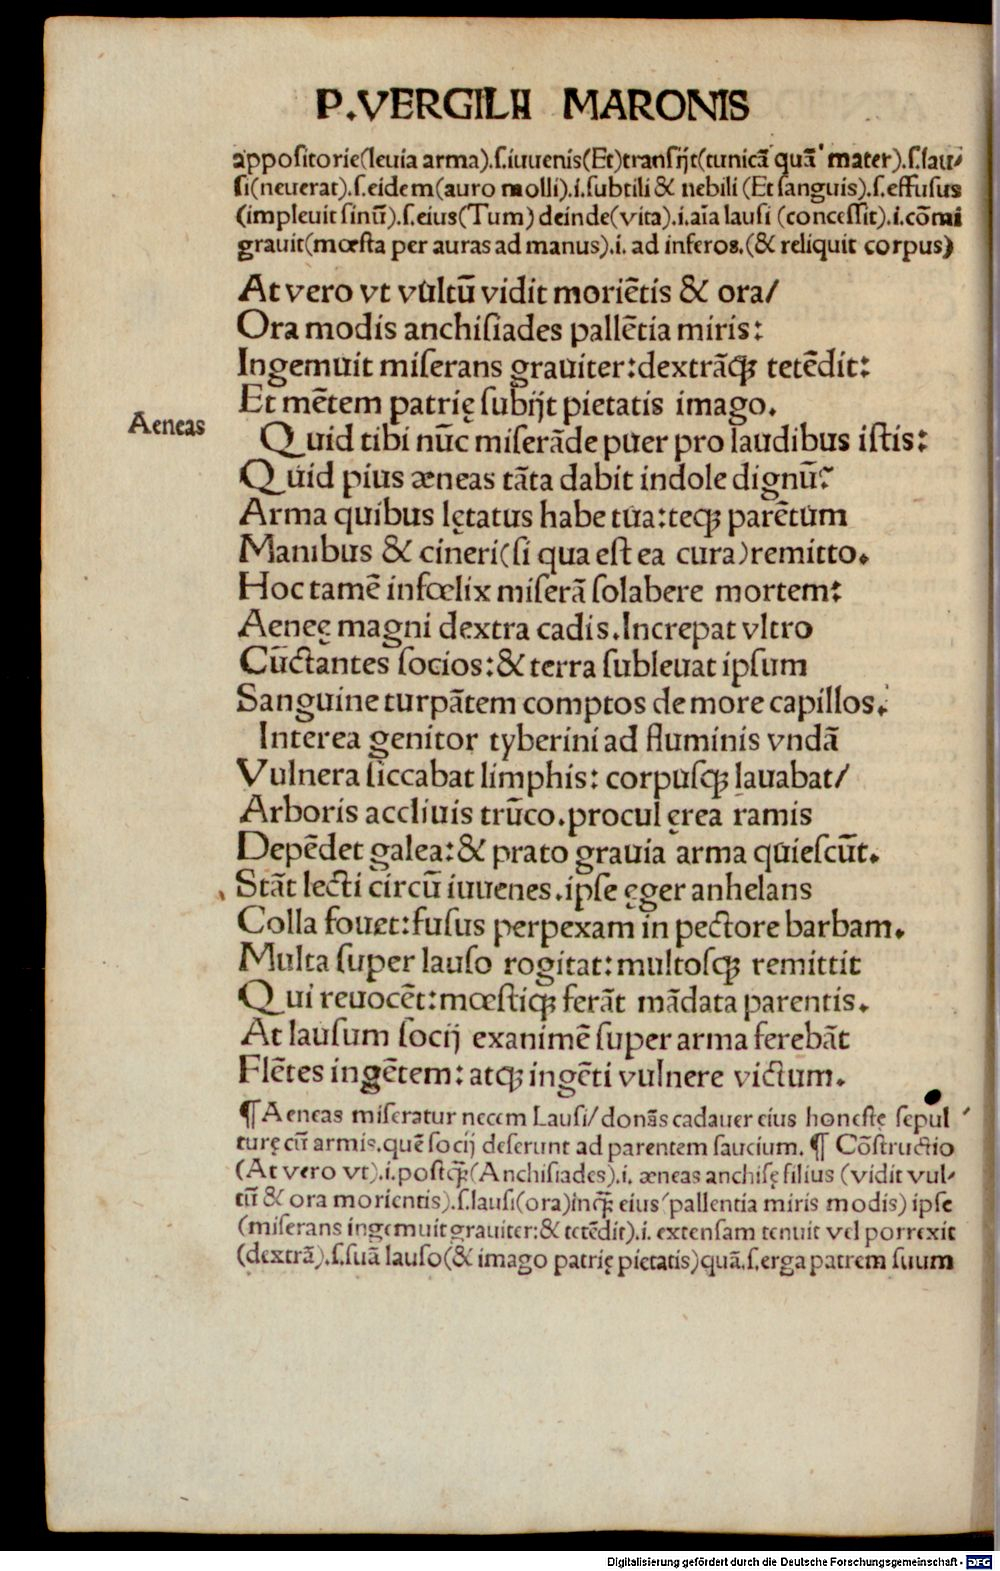 P.VERGILII MARONIS
appositorie(leuia arma).s.iuuenis(Et)transijt(tunicā quā mater).s.lau⸗
si(neuerat).s.eidem(auro molli).i.subtili & nebili (Et sanguis).s.effusus
(impleuit sinū).s.eius(Tum) deinde(vita).i.aīa lausi (concessit).i.cōmi
grauit(mœsta per auras ad manus).i. ad inferos.(& reliquit corpus)
At vero vt vultū vidit moriētis & ora/
Ora modis anchisiades pallētia miris:
Ingemuit miserans grauiter:dextrāqꝫ tetēdit:
Et mētem patrię subijt pietatis imago.
Aeneas
Quid tibi nūc miserāde puer pro laudibus istis:
Quid pius æneas tāta dabit indole dignū?
Arma quibus lętatus habe tua:teqꝫ parētum
Manibus & cineri(si qua est ea cura)remitto.
Hoc tamē infœlix miserā solabere mortem:
Aeneę magni dextra cadis.Increpat vltro
Cūctantes socios:& terra subleuat ipsum
Sanguine turpātem comptos de more capillos.
Interea genitor tyberini ad fluminis vndā
Vulnera siccabat limphis: corpusqꝫ lauabat/
Arboris accliuis trūco.procul ęrea ramis
Depēdet galea:& prato grauia arma quiescūt.
Stāt lecti circū iuuenes.ipse ęger anhelans
Colla fouet:fusus perpexam in pectore barbam.
Multa super lauso rogitat:multosqꝫ remittit
Qui reuocēt:mœstiqꝫ ferāt mādata parentis.
At lausum socij exanimē super arma ferebāt
Flētes ingētem: atqꝫ ingēti vulnere victum.
¶ Aeneas miseratur necem Lausi/ donās cadauer eius honestę sepul
turę cū armis.quē socij deserunt ad parentem saucium. ¶ Cōstructio
(At vero vt).i.postqꝫ̄(Anchisiades).i. æneas anchisę filius (vidit vul⸗
tū & ora morientis).s.lausi(ora)inqꝫ̄ eius(pallentia miris modis) ipse
(miserans ingemuit grauiter:& tetēdit).i. extensam tenuit vel porrexit
(dextrā).s.suā lauso(& imago patrię pietatis)quā.s.erga patrem suum
Digitalisierung gefördert durch die Deutsche Forschungsgemeinschaft - DFG